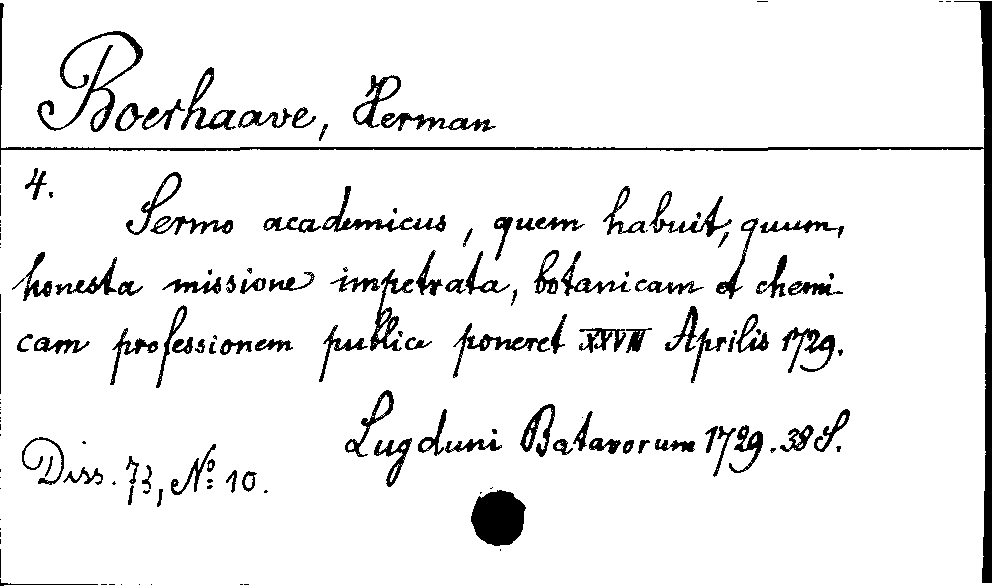 Boerhaave, Herman
4.
Sermo academicus, quem habuit, quum,
honesta missione impetrata, botanicam et chemi-
cam professionem publice poneret XXVIII Aprilis 1729.
Lugduni Batavorum 1729. 38 S.
Diss. 73, No 10.